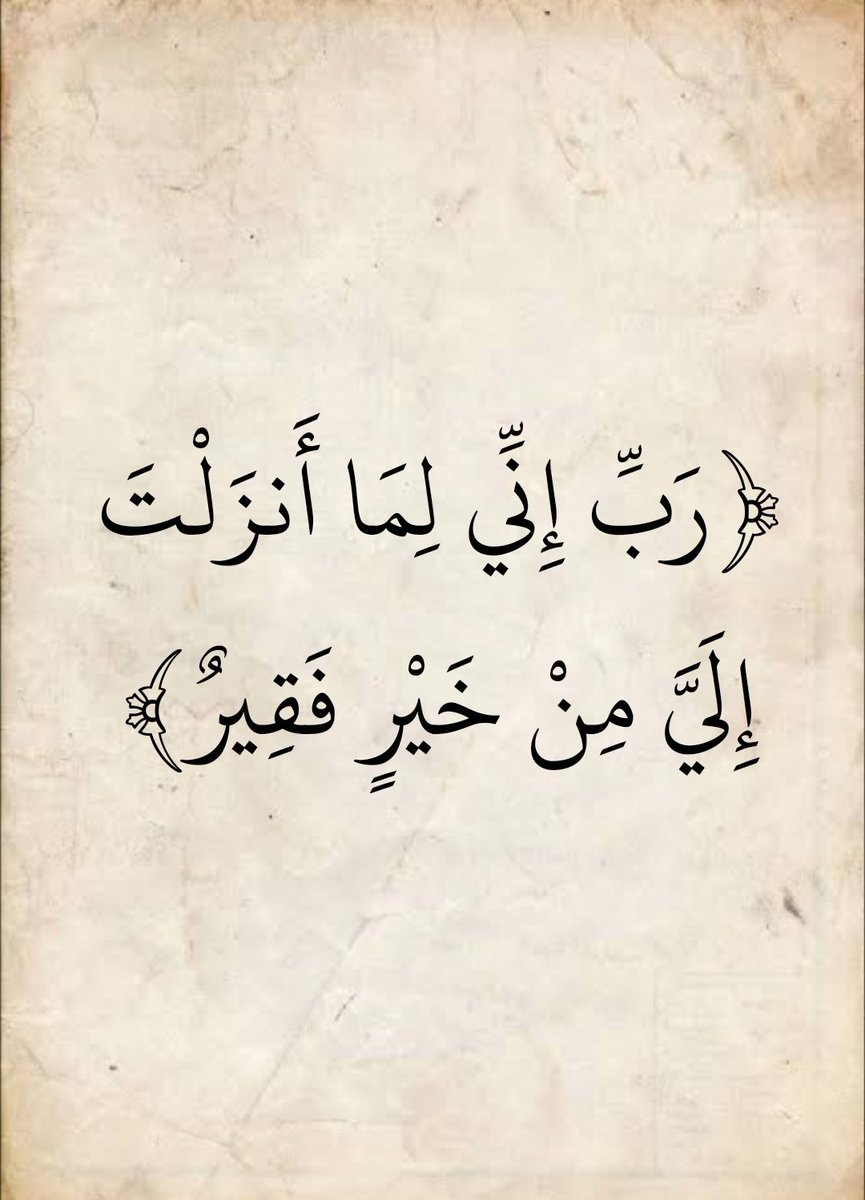 ﴿رَبِّ إِنِّي لِمَا أَنزَلْتَ
إِلَيَّ مِنْ خَيْرٍ فَقِيرٌ﴾